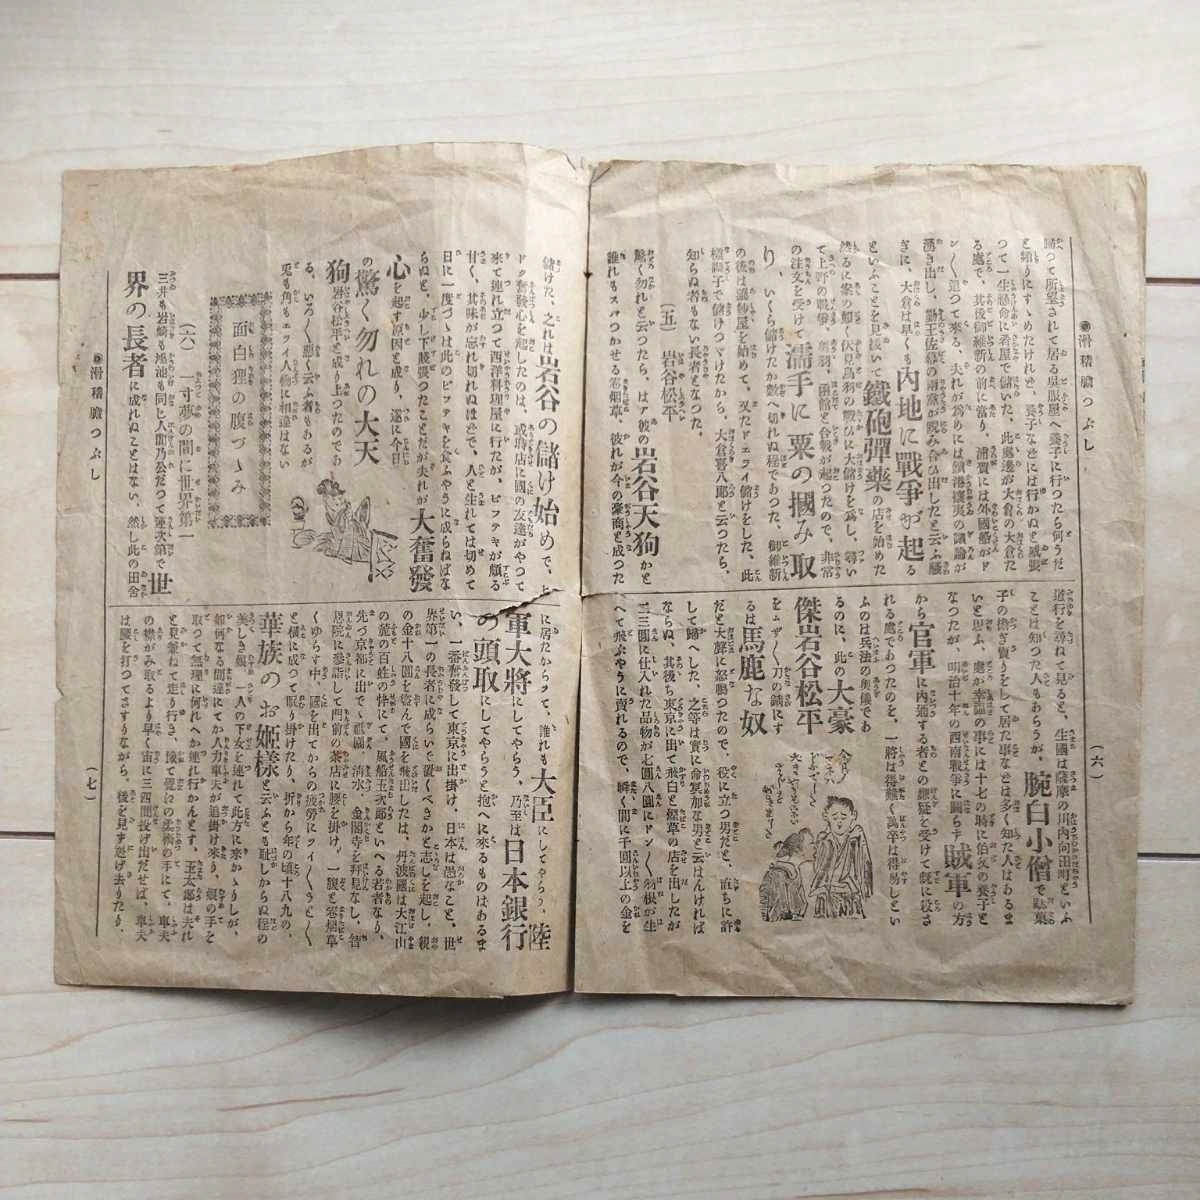 ◉滑稽膽つぶし
(六)
勝つて所望されて居る呉服屋へ養子に行つたら何うだ
と頻りにすゝめたけれど、養子などには行かぬと威張
つて一生懸命に肴屋で儲いた、此處邊が大倉の大倉た
る處で、其後御維新の前に當り、浦賀には外國船がド
ン〱迫つて來る、夫れが爲めには鎖港攘夷の議論が
湧き出し、勤王佐幕の兩黨が睨み合ひ出したと云ふ騒
ぎに、大倉は早くも内地に戰爭が起る
といふことを見抜いて鐵砲彈藥の店を始めた
然るに案の如く伏見鳥羽の戰ひに大儲けを爲し、尋い
て上野の戰爭、奥羽、函館と合戰が起つたので、非常
の注文を受けて濡手に粟の摑み取
り、いくら儲けたか數へ切れぬ程であつた、御維新
の後は
屋を始めて、又たドエライ儲けをした、此
様調子で儲けつゞけたから、大倉喜八郎と云つたら、
知らぬ者もない長者となつた。
(五) 岩谷松平
驚く勿れと云つたら、はア彼の岩谷天狗かと
誰れもスパつかせる卷烟草、彼れが今の豪商と成つた
道行を尋ねて見ると、生國は薩摩の川内向田町といふ
ことは知つた人もあらうが、腕白小僧で駄菓
子の擔ぎ賣りをして居た事などは多く知た人はあるま
いと思ふ、處が幸福の事には十七の時に伯父の養子と
なつたが、明治十年の西南戰爭に圖らず賊軍の方
から官軍に内通する者との嫌疑を受けて既に殺さ
れる處であつたのを、一將は得難く萬卒は得易しとい
ふのは兵法の奥儀であ
るのに、此の大豪
傑岩谷松平
をムザ〱刀の錆にす
るは馬鹿な奴
だと大聲に怒鳴つたので、役に立つ男だと、直ちに許
して歸へした、之等は實に命冥加な男と云はんければ
ならぬ、其後ち東京に出て飛白と煙草の店を出したが
二三圓に仕入れた品物が七圓八圓にドン〱羽根が生
へて飛ぶやうに賣れるので、瞬く間に千圓以上の金を
儲けた、之れは岩谷の儲け始めで、且
ドク奮發心を起したのは、或時店に國の友達がやつて
來て連れ立つて西洋料理屋に行たが、ビフテキが頗る
甘く、其味が忘れ切れぬほどで、人と生れては切めて
日に一度づゝは此のビフテキを食ふやうに成らねばな
らぬと、少し下賤張つたことだが夫れが大奮發
心を起す原因と成り、遂に今日
の驚く勿れの大天
狗岩谷松平と成り上つたのであ
る、いろ〱惡く云ふ者もあるが
兎も角もエライ人物に相違はない
面白狸の腹づゝみ
(六) 一寸夢の間に世界第一
三井も岩崎も鴻池も同じ人間乃公だつて運次第で世
界の長者に成れぬことはない、然し此の田舎
に居たからツて、誰れも大臣にしてやらう、陸
軍大將にしてやらう、乃至は日本銀行
の頭取にしてやらうと抱へに來るものはあるま
い、一番奮發して東京に出掛け、日本は愚なこと、世
界第一の長者に成らいで置くべきかと志しを起し、親
の金十八圓を盗んで國を飛出したは、丹波國は大江山
の麓の百姓の忰にて、風船玉次郎といへる若者なり、
先づ京都に出でゝ祇園、清水、金閣寺を拜見なし、智
恩院に參詣して門前の茶店に腰を掛け、一腹と卷烟草
くゆらす中、國を出てからの疲勞にフイ〱うと〱
と横に成つて眠り掛けたり、折から年の頃十八九の、
華族のお姫様と云ふとも恥しからぬ程の
美しき娘、一人の下女を連れて此方に來かゝりしが、
如何なる間違にてか人力車夫が追掛け來り、娘の手を
取つて無理に何れへか連れ行かんとす、玉太郎は夫れ
と見兼ねて走り行き、豫て覺えの柔術の手にて、車夫
の襟がみ取るより早く宙に三四間投げ出だせば、車夫
は腰を打つてさすりながら、後を見ず逃げ去りたり、
◉滑稽膽つぶし
(七)